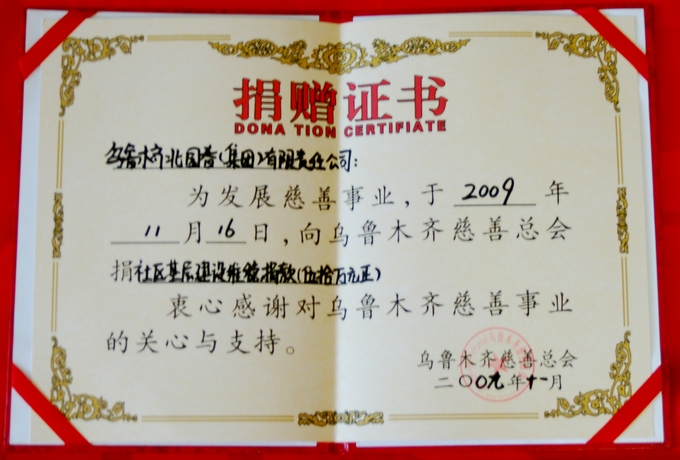 捐赠证书
DONA TION CERTIFIATE
乌鲁木齐北园春(集团)有限责任公司:
为发展慈善事业,于 2009 年
11 月 16 日,向乌鲁木齐慈善总会
捐社区基层建设维稳捐款(伍拾万元正)
衷心感谢对乌鲁木齐慈善事业
的关心与支持。
乌鲁木齐慈善总会
二〇〇九年十一月